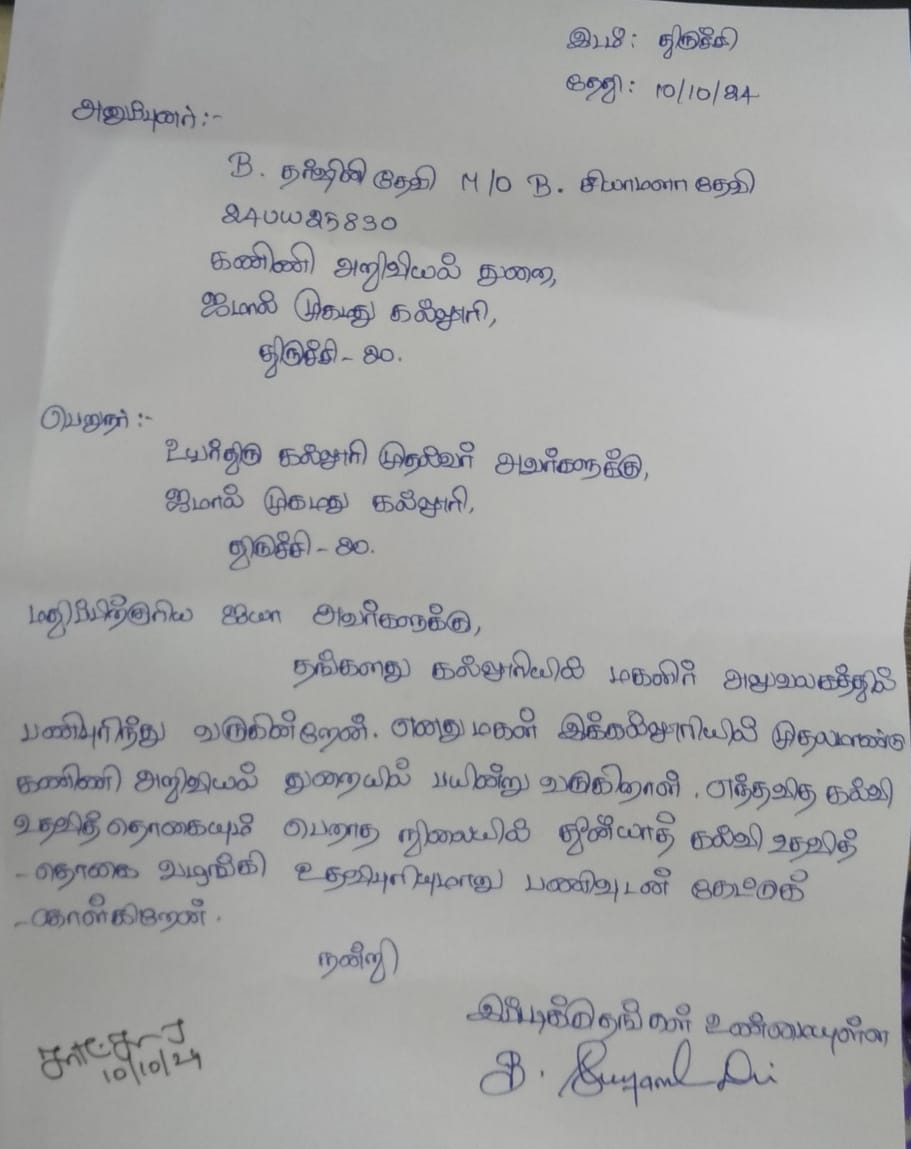 இடம்: திருச்சி
தேதி: 10/10/24
அனுப்புனர்:-
B. தர்ஷினி தேவி M/O B. சியாமளா தேவி
24UW25830
கணிணி அறிவியல் துறை,
ஜமால் முகமது கல்லூரி,
திருச்சி - 20.
பெறுநர்:-
உயர்திரு கல்லூரி முதல்வர் அவர்களுக்கு,
ஜமால் முகமது கல்லூரி,
திருச்சி - 20.
மதிப்பிற்குரிய ஐயா அவர்களுக்கு,
தங்களது கல்லூரியில் மகளிர் அலுவலகத்தில்
பணிபுரிந்து வருகின்றேன். எனது மகள் இக்கல்லூரியில் முதலாண்டு
கணிணி அறிவியல் துறையில் பயின்று வருகிறாள். எந்தவித கல்வி
உதவித்தொகையும் பெறாத நிலையில் ஜன்யாத் கல்வி உதவித்
-தொகை வழங்கி உதவிபுரியுமாறு பணிவுடன் கேட்டுக்
-கொள்கிறேன்.
நன்றி
இப்படிக்கு தங்கள் உண்மையுள்ள
B.
10/10/24